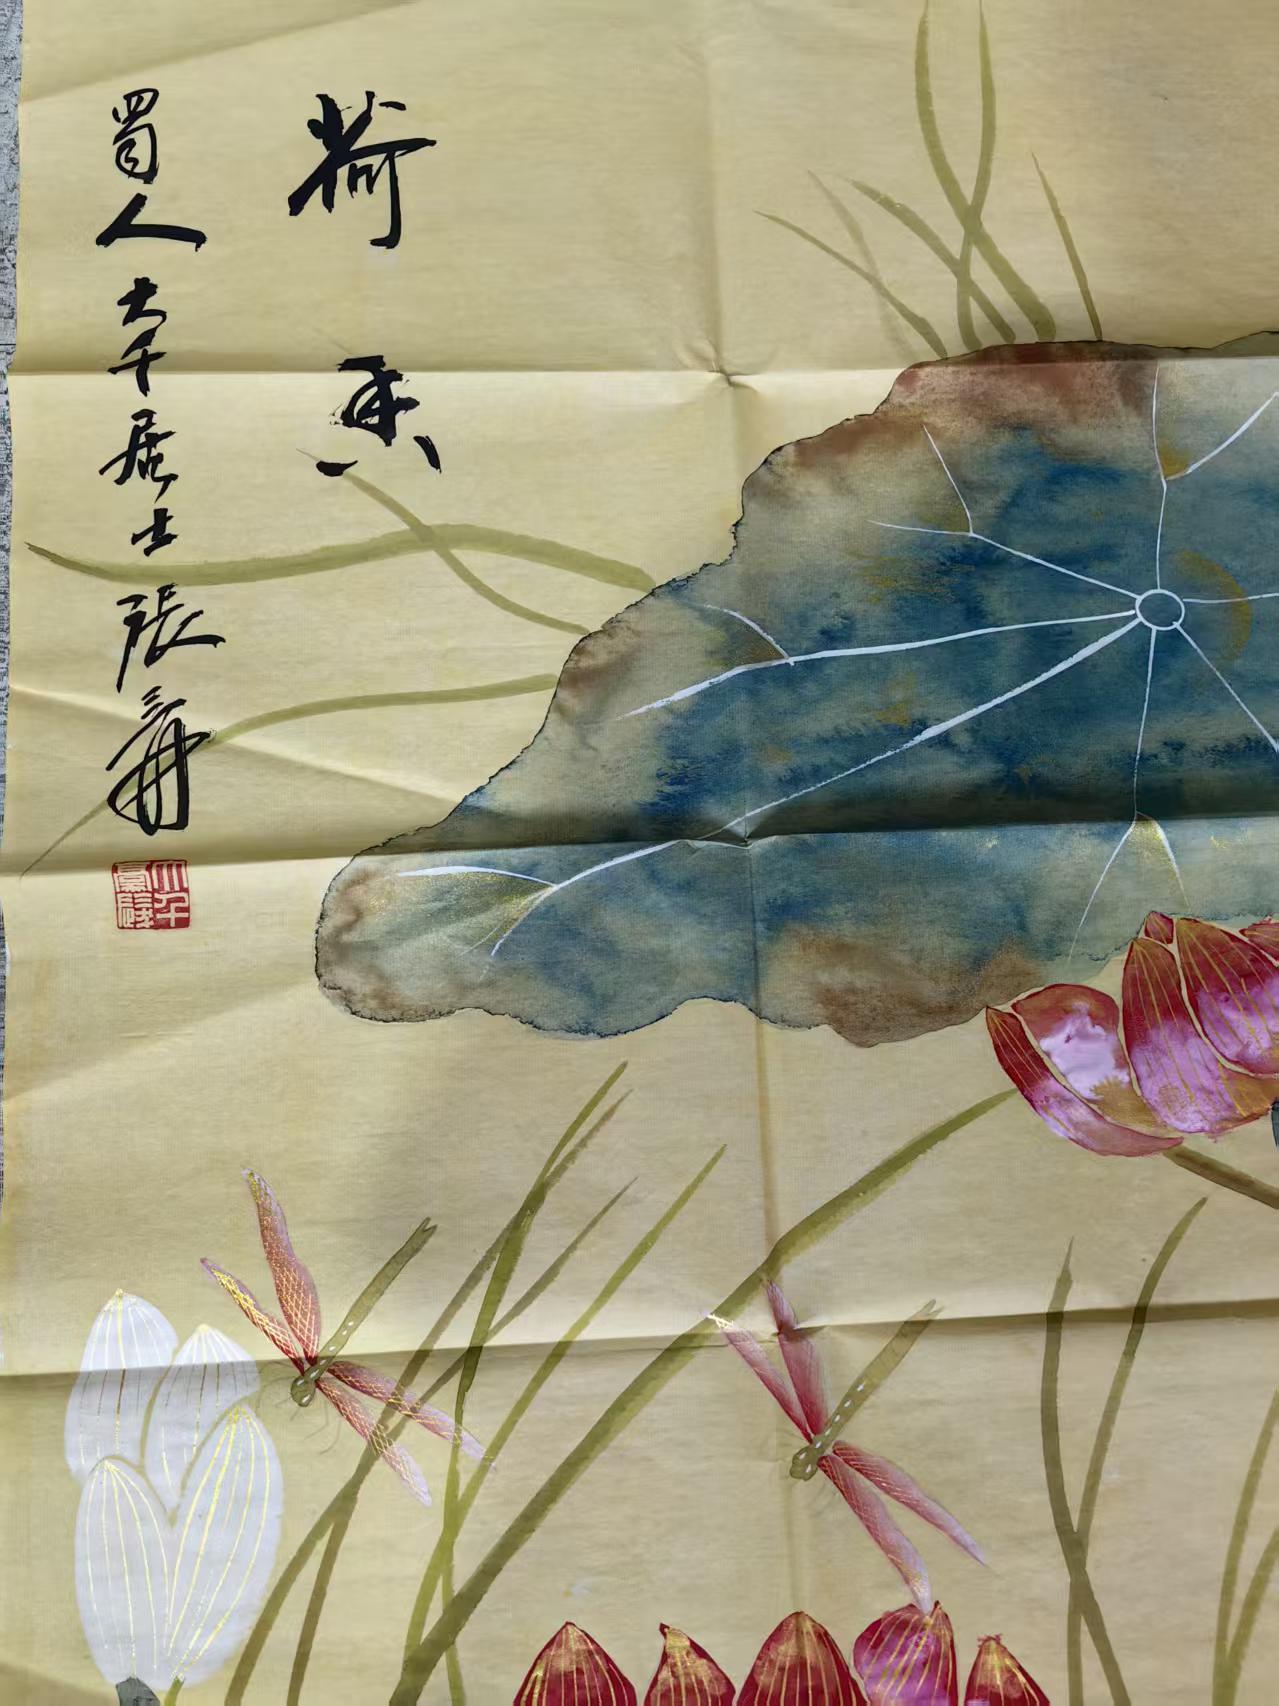 荷香
蜀人大千居士張爰
大千豪髮